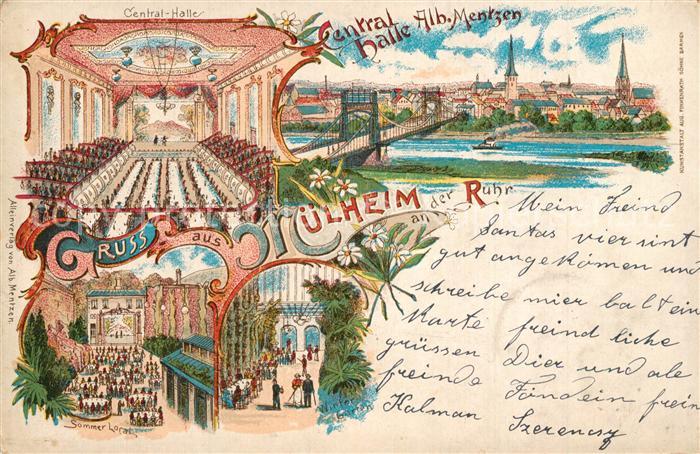 Central-Halle
Central
Halle Alb. Mentzen
KUNSTANSTALT AUG. FINKENRATH SÖHNE BARMEN
Alleinverlag von Alb. Mentzen.
GRUSS aus MÜLHEIM an der Ruhr.
Sommer Local
Winter
Mein Freind
Santas vier sint
gut angekömen und
schreibe mier balt ein
Karte freind liche
grüssen Dier und ale
freinde
Kalman Szerencsy